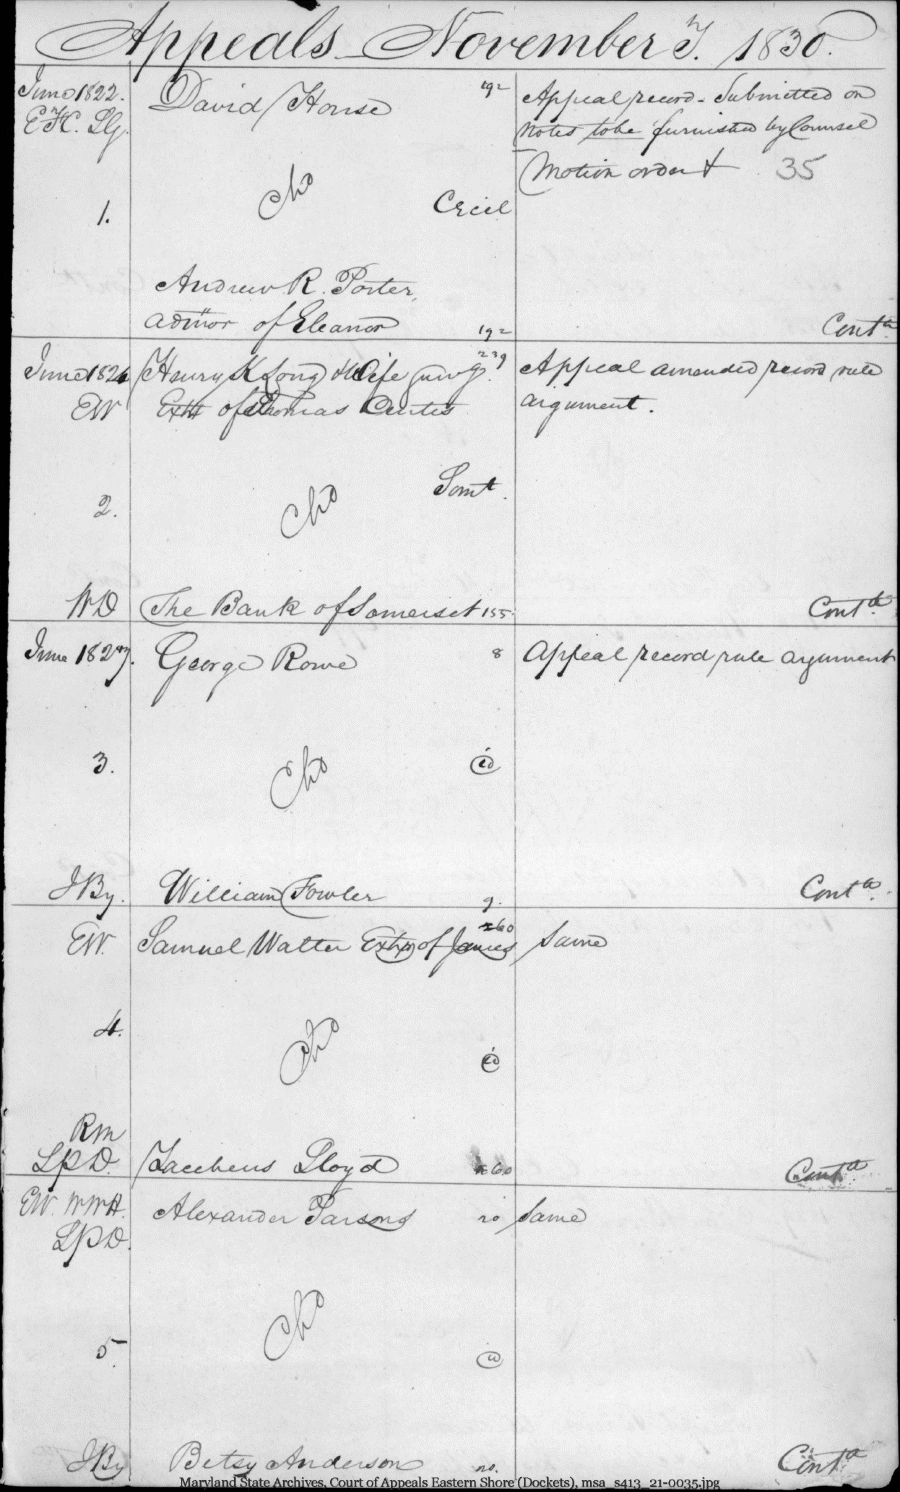 Appeals November T. 1830.
June 1822. David House Appeal record. Submitted on
notes to be furnished by Counsel
Motion order 35
Cecil
1.
Andrew R. Porter,
admor of Eleanor 192 Contd
June 1826 Henry K Long & Wife 239 Appeal amended record rule
EW of Thomas Curtis argument.
Somt.
2.
WD The Bank of Somerset 155 Contd
June 1827. George Rowe 8 Appeal record rule argument
3. id
JBy. William Fowler 9. Contd.
EW. Samuel Walter of James 260 Same
4. id
RM
LPD. Zaccheus Lloyd 260 Contd
EW. WWH. Alexander Parsons no Same
LPD.
5. id
JBy Betsy Anderson no. Contd
Maryland State Archives, Court of Appeals Eastern Shore (Dockets), msa_s413_21-0035.jpg